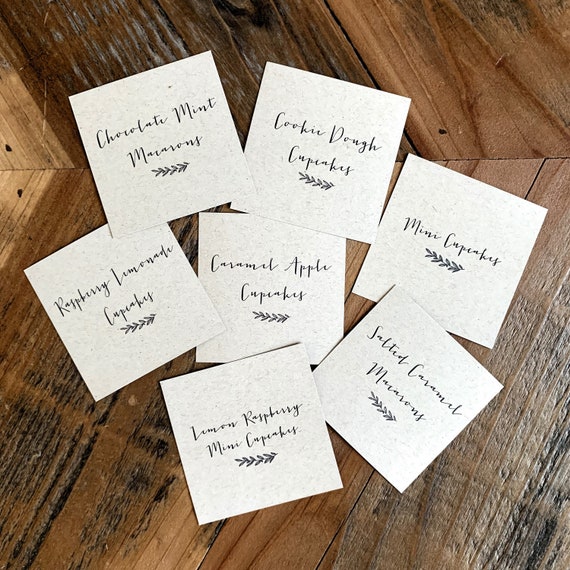 Chocolate Mint
Macarons
Cookie Dough
Cupcakes
Mini Cupcakes
Raspberry Lemonade
Cupcakes
Caramel Apple
Cupcakes
Salted Caramel
Macarons
Lemon Raspberry
Mini Cupcakes